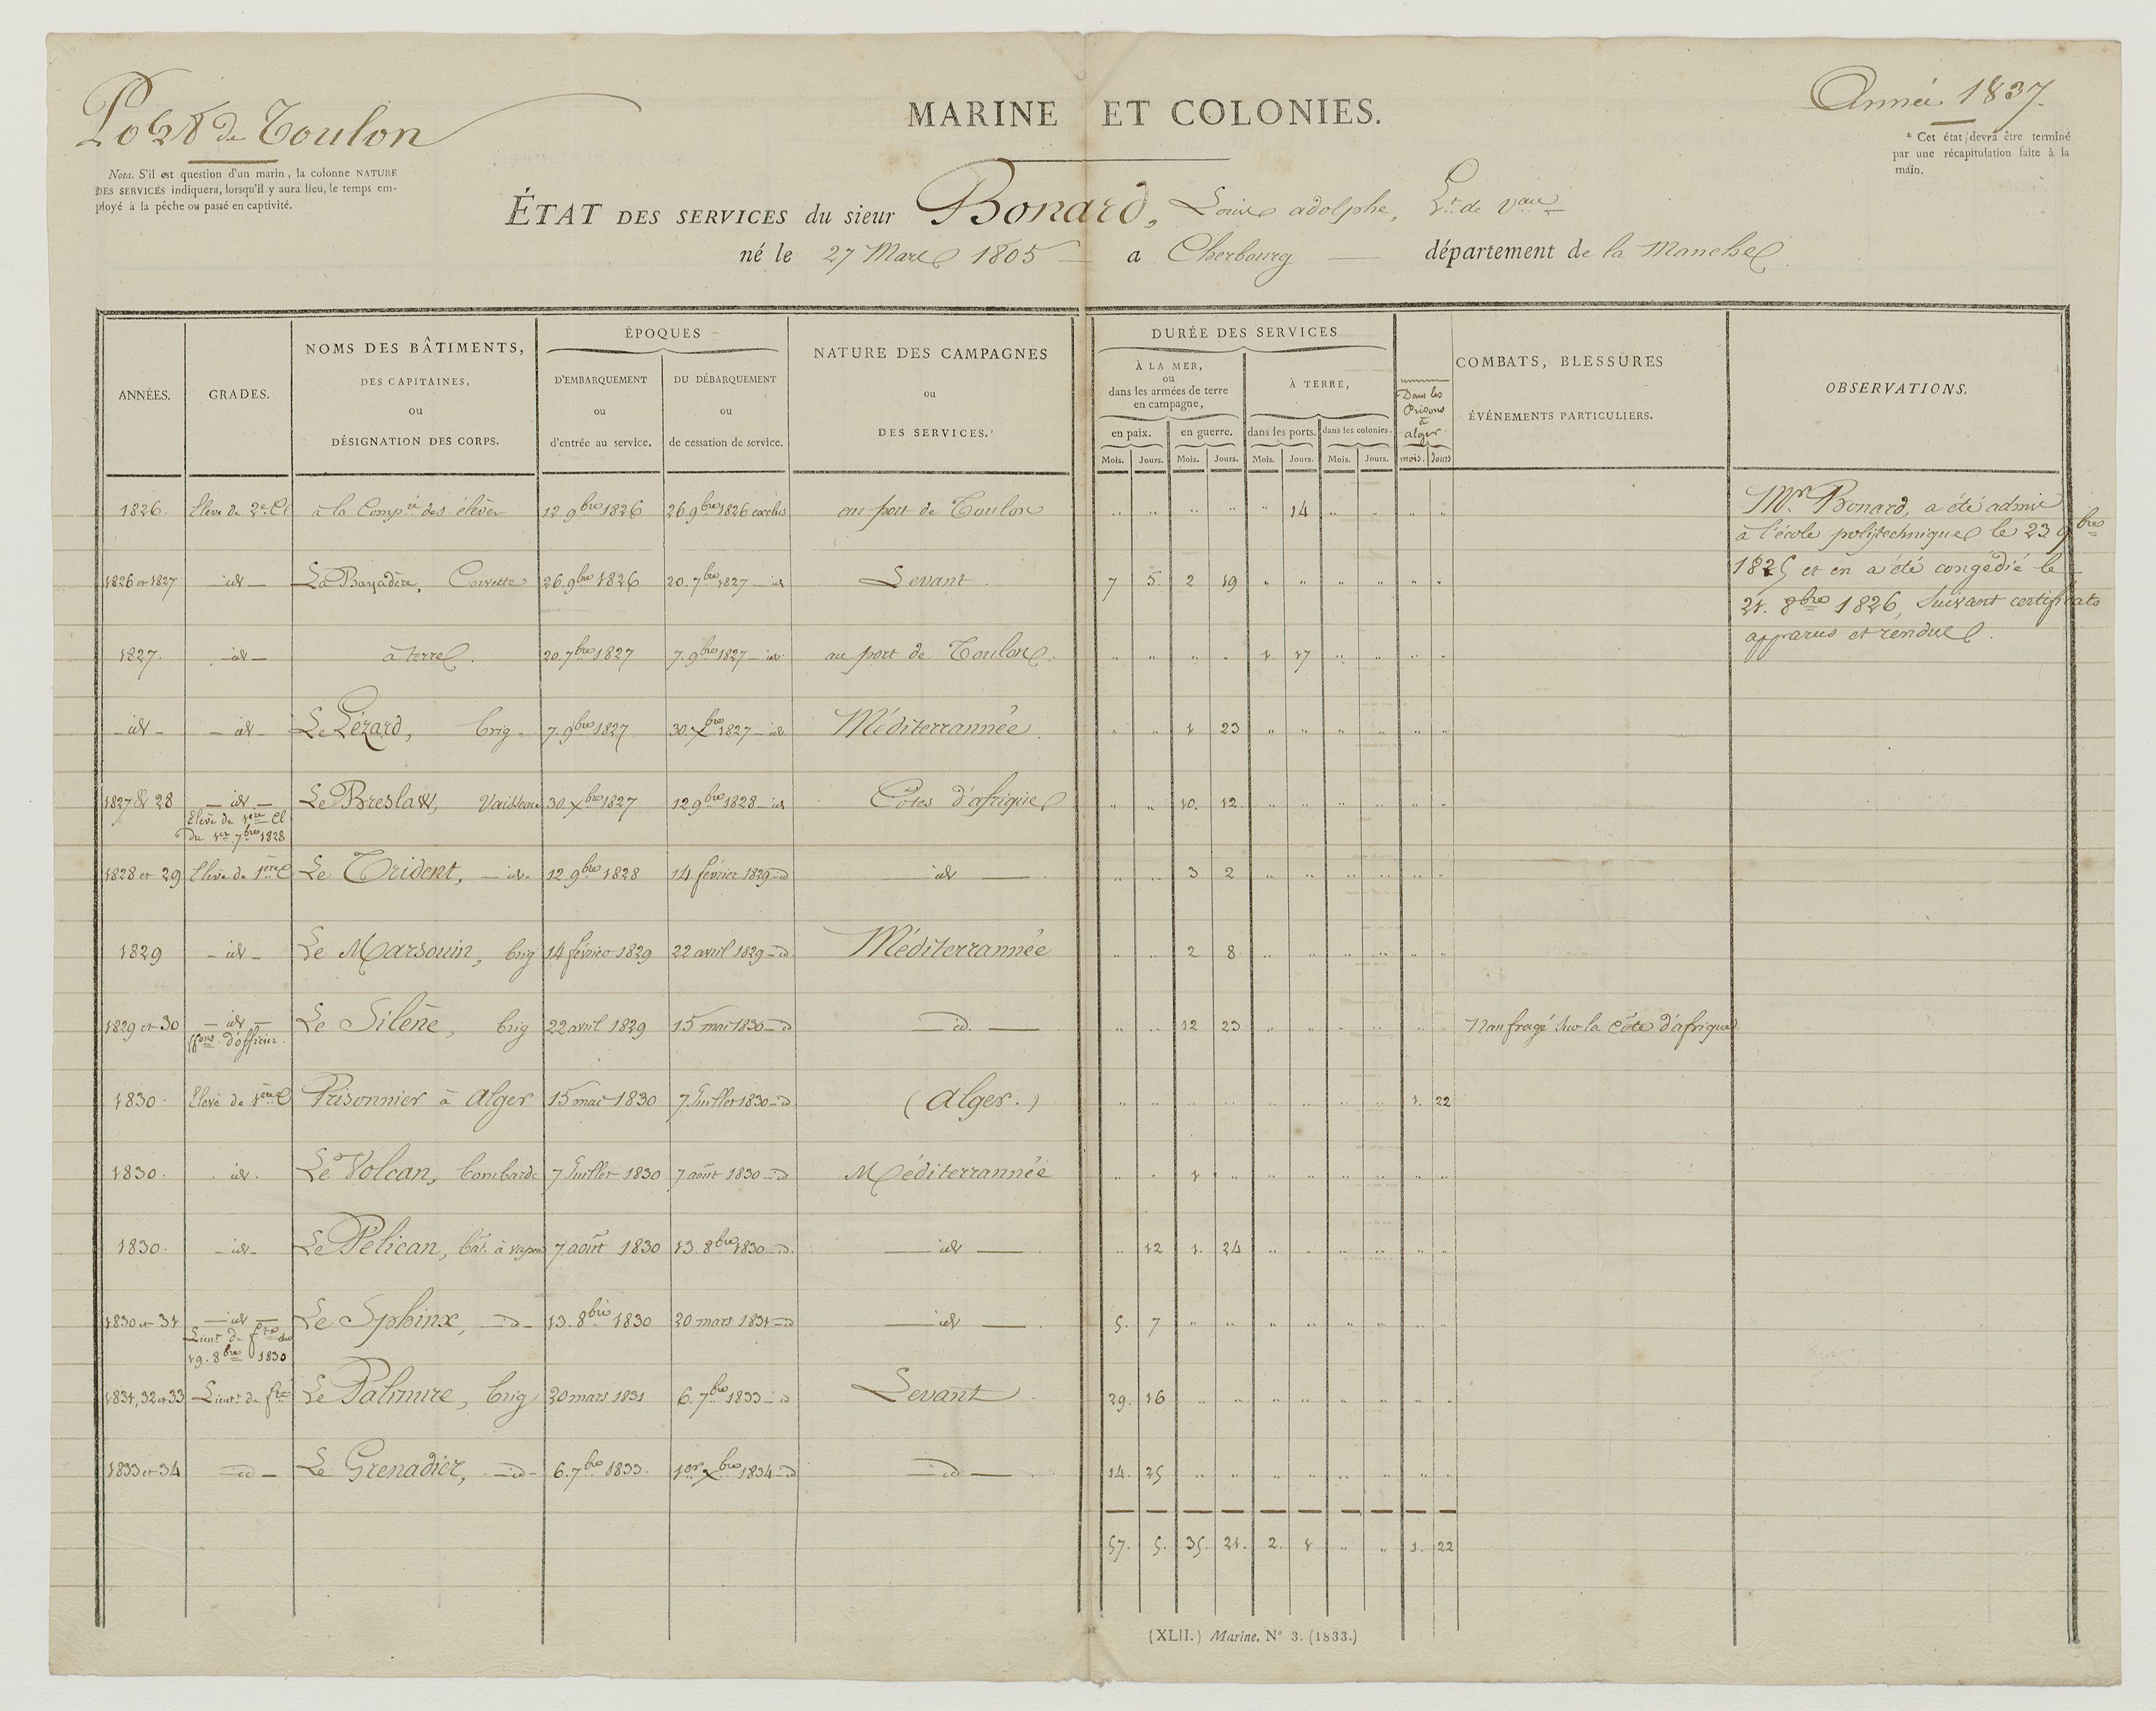 Port de Toulon
Nota. S'il est question d'un marin, la colonne NATURE
DES SERVICES indiquera, lorsqu'il y aura lieu, le temps em-
ployé à la pêche ou passé en captivité.
MARINE ET COLONIES.
Année 1837.
* Cet état devra être terminé
par une récapitulation faite à la
main.
ÉTAT DES SERVICES du sieur Bonard, Louis adolphe, Lt. de Vau
né le 27 Mars 1805 — a Cherbourg — département de la Manche
ANNÉES.
GRADES.
NOMS DES BÂTIMENTS,
DES CAPITAINES,
ou
DÉSIGNATION DES CORPS.
ÉPOQUES
D'EMBARQUEMENT
ou
d'entrée au service.
DU DÉBARQUEMENT
ou
de cessation de service.
NATURE DES CAMPAGNES
ou
DES SERVICES.*
DURÉE DES SERVICES
À LA MER,
ou
dans les armées de terre
en campagne,
en paix. en guerre.
À TERRE,
dans les ports. dans les colonies.
Dans les
Prisons
à
alger.
Mois. Jours. Mois. Jours. Mois. Jours. Mois. Jours. mois. Jours
COMBATS, BLESSURES
ÉVÉNEMENTS PARTICULIERS.
OBSERVATIONS.
1826. Elève de 2e Cl à la Compie des élèves 12 9bre 1826 26 9bre 1826 exclus au port de Toulon " " " " " 14 " " " "
1826 et 1827 — id — La Bayadère, Corvette 26 9bre 1826 20. 7bre 1827 — id Levant. 7 5 2 19 " " " " " "
1827. — id — à terre. 20. 7bre 1827 7. 9bre 1827 — id au port de Toulon. " " " " 1 17 " " " "
— id — — id — Le Lézard, brig. 7. 9bre 1827 30. Xbre 1827 — id Méditerrannée. " " 1 23 " " " " " "
1827 & 28 — id — Le Breslaw, Vaisseau 30. Xbre 1827 12 9bre 1828 — id Côtes d'afrique " " 10. 12. " " " " " "
Elève de 1ere Cl
du 1er 7bre 1828
1828 et 29 Elève de 1ere Cl Le Trident, — id. 12. 9bre 1828 14 février 1829 — d — id — " " 3 2 " " " " " "
1829 — id — Le Marsouin, brig 14 février 1829 22 avril 1829 — d Méditerrannée " " 2 8 " " " " " "
1829 et 30 — id — Le Silène, brig 22 avril 1829 15 mai 1830 — d — id. — " " 12 23 " " " " " " Naufragé sur la Côte d'afrique
ffons d'officier.
1830. Elève de 1ere Cl Prisonnier à Alger 15 mai 1830 7. Juillet 1830 — d (Alger.) " " " " " " " " 1. 22
1830. . id. Le Volcan, bombarde 7 Juillet 1830 7 août 1830 — d Méditerrannée " " 1 " " " " " " "
1830. — id — Le Pélican, bât. à vapeur 7. août 1830 13. 8bre 1830 — d — id — " 12 1. 24 " " " " " "
1830 et 31 — id — Le Sphinx, — d — 13. 8bre 1830 20 mars 1831 — d — id — 5. 7 " " " " " " " "
Lieut. de fte du
19. 8bre 1830
1831, 32 et 33 Lieut. de fte Le Palinure, brig 20 mars 1831 6. 7bre 1833 — d Levant. 29. 16 " " " " " " " "
1833 et 34 — id — Le Grenadier, — id — 6. 7bre 1833. 1er Xbre 1834 — d — id — 14. 25 " " " " " " " "
57. 5. 35. 21. 2. 1 " " 1. 22
Mr. Bonard, a été admis
à l'école polytechnique le 23 9bre
1825 et en a été congédié le
21. 8bre 1826, Suivant certificats
apparus et rendus.
(XLII.) Marine. N° 3. (1833.)